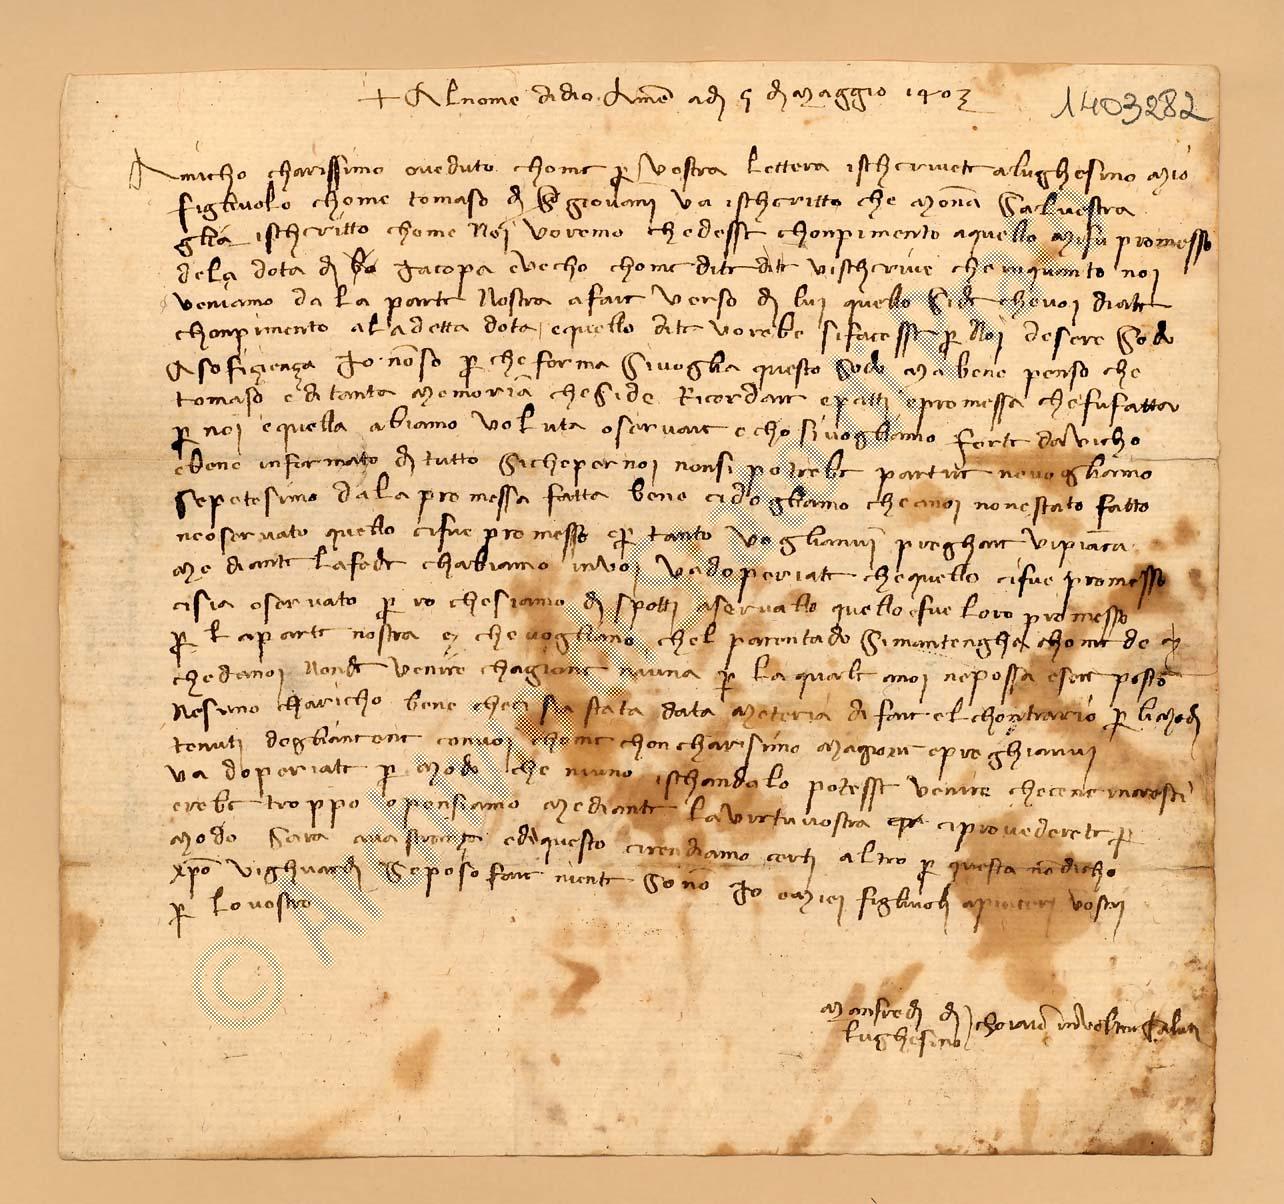 + Al nome didio Amē adj 5 dj Maggio 1403
1403282
Amicho charissimo oveduto chome pr vostra lettera ischrivete alughesino mio
figluvolo chome tomaso dj S giovanj va ischritto che monā Salvestra
glia ischritto chome Noi voremo chedesse chonpimento aquello promesso
dela dota dj Jacopa evecho chome vischrive che inquanto noi
veniamo dala parte Nostra afare verso dj luj quello chevoi diate
chonpimento aladetta dota equello dite vorebe sifacesse pr Noj desere Sodo
Asofiçença Jo nōso pr che forma Sivoglia questo Sodo Ma bene penso che
tomaso e ditanta Memoria cheside Ricordare epatti epromessa chefufatta
pr noi equella abiamo voluta oservare echosivogliamo forte davicho
ebene informato dj tutto Sicheper noi nonsi potrebe partire nevogliamo
Sepotesimo dala promessa fatta bene cidogliamo cheanoi nonestato fatto
neoservato quello cifue promesso epr tanto voglianvi preghare vipiaca
Mediante lafede chabiamo invoi vadoperiate chequello cifue promesso
cisia oservato pr ro chesiamo dj sposti aservallo quello efue loro promesso
pr laparte nostra e chevogliano chel parentado Simantengha chome de e
chedanoi Nonde venire chagione niuna pr laquale anoi nepossa esere posto
Nesuno charicho bene che sia stata data Materia difare elchontrario pr
tenuti convoi chome chon charisimo Magiore epreghianvi
vadoperiate pr Modo che niuno ischandalo potesse venire
erebe troppo opensiamo Mediante lavirtuvostra ciprovederete pr
Modo Sara edi questo cirendiamo certi altro pr questa nōdicho
xpō vighuardj Seposo fare niente Sono Jo emiei figluvolj apiaceri vostrj
pr lo vostro
Manfredj dj
lughesino